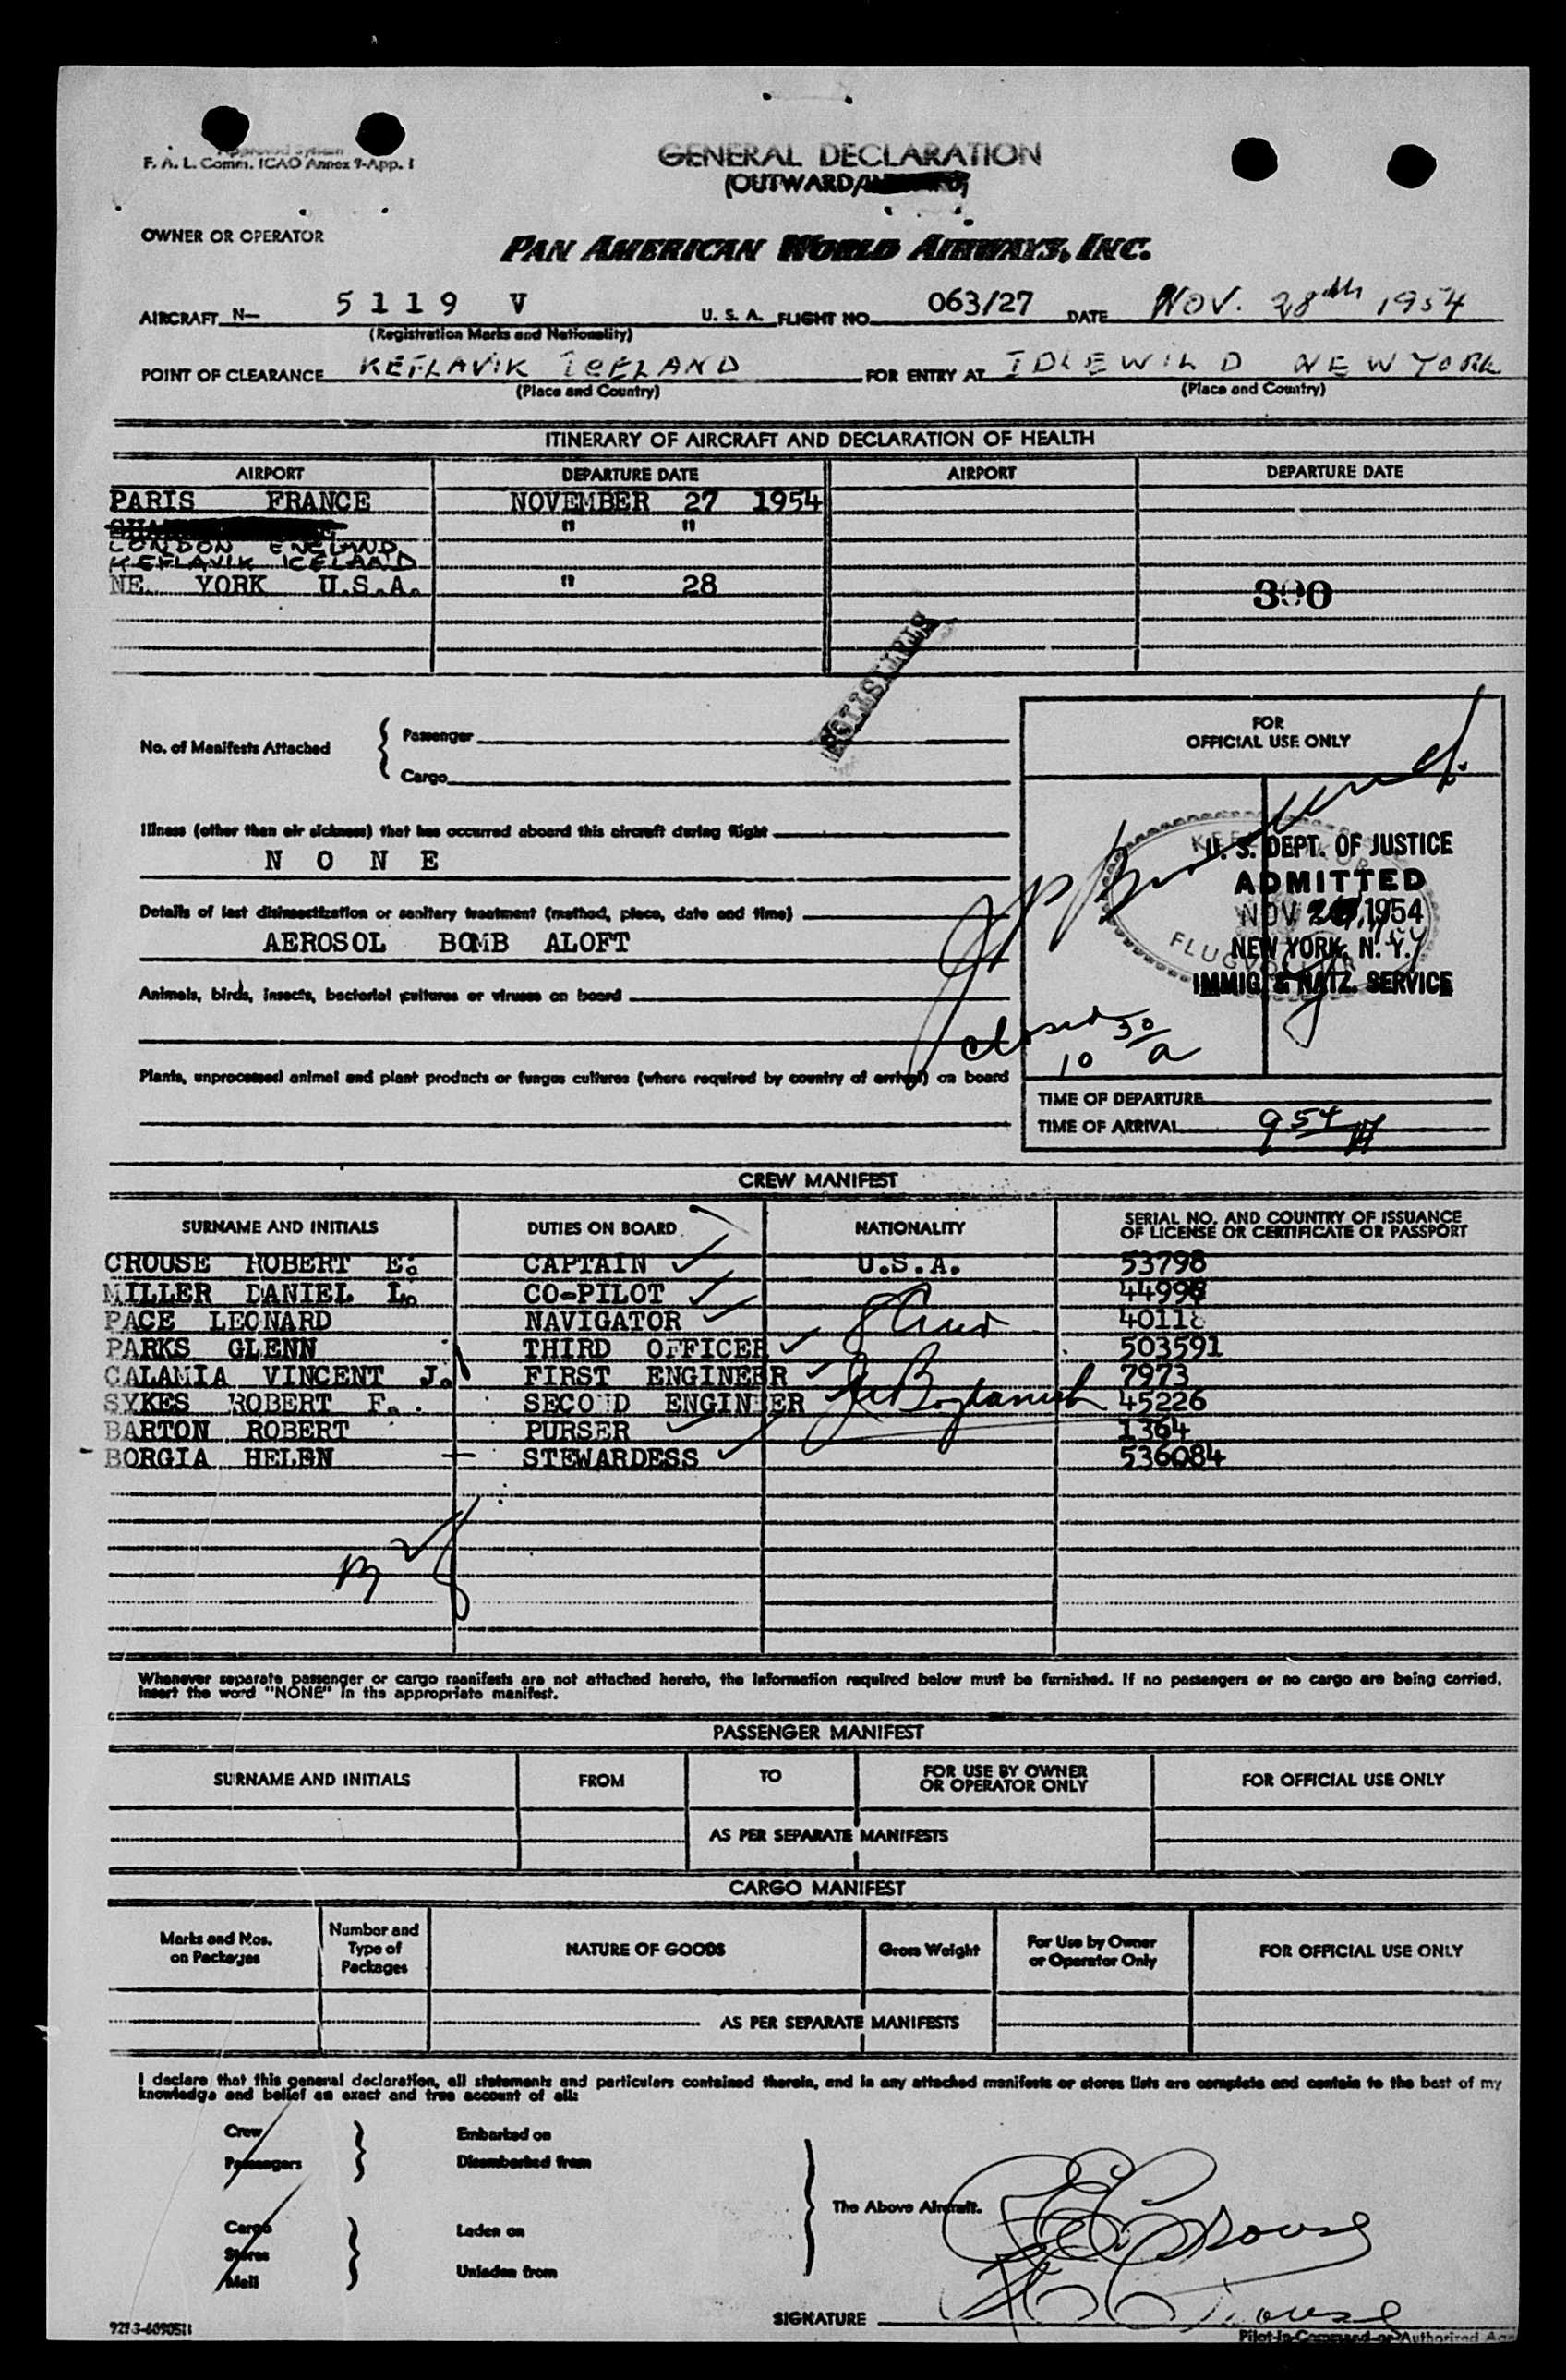 F. A. L. Comm. ICAO Annex 9-App. 1
GENERAL DECLARATION
(OUTWARD/
OWNER OR OPERATOR
PAN AMERICAN WORLD AIRWAYS, INC.
AIRCRAFT N— 5119 V U. S. A. FLIGHT NO. 063/27 DATE NOV. 28th 1954
(Registration Marks and Nationality)
POINT OF CLEARANCE KEFLAVIK ICELAND FOR ENTRY AT IDLEWILD NEW YORK
(Place and Country) (Place and Country)
ITINERARY OF AIRCRAFT AND DECLARATION OF HEALTH
AIRPORT DEPARTURE DATE AIRPORT DEPARTURE DATE
PARIS FRANCE NOVEMBER 27 1954
" "
LONDON ENGLAND
KEFLAVIK ICELAND
NE YORK U.S.A. " 28
No. of Manifests Attached { Passenger
Cargo
FOR
OFFICIAL USE ONLY
Illness (other than air sickness) that has occurred aboard this aircraft during flight
N O N E
Details of last disinsectization or sanitary treatment (method, place, date and time)
AEROSOL BOMB ALOFT
Animals, birds, insects, bacterial cultures or viruses on board
Plants, unprocessed animal and plant products or fungus cultures (where required by country of arrival) on board
U. S. DEPT. OF JUSTICE
ADMITTED
NOV 1954
NEW YORK, N. Y.
IMMIG. & NATZ. SERVICE
closed
10 30/a
TIME OF DEPARTURE
TIME OF ARRIVAL 9 54
CREW MANIFEST
SURNAME AND INITIALS DUTIES ON BOARD NATIONALITY SERIAL NO. AND COUNTRY OF ISSUANCE
OF LICENSE OR CERTIFICATE OR PASSPORT
CROUSE ROBERT E. CAPTAIN U.S.A. 53798
MILLER DANIEL L. CO-PILOT 44998
PACE LEONARD NAVIGATOR 40118
PARKS GLENN THIRD OFFICER 503591
CALAMIA VINCENT J. FIRST ENGINEER 7973
SYKES ROBERT F. SECOND ENGINEER 45226
BARTON ROBERT PURSER 1364
BORGIA HELEN — STEWARDESS 536084
Whenever separate passenger or cargo manifests are not attached hereto, the information required below must be furnished. If no passengers or no cargo are being carried,
insert the word "NONE" in the appropriate manifest.
PASSENGER MANIFEST
SURNAME AND INITIALS FROM TO FOR USE BY OWNER
OR OPERATOR ONLY FOR OFFICIAL USE ONLY
AS PER SEPARATE MANIFESTS
CARGO MANIFEST
Marks and Nos.
on Packages
Number and
Type of
Packages
NATURE OF GOODS
Gross Weight
For Use by Owner
or Operator Only
FOR OFFICIAL USE ONLY
AS PER SEPARATE MANIFESTS
I declare that this general declaration, all statements and particulars contained therein, and in any attached manifests or stores lists are complete and contain to the best of my
knowledge and belief an exact and true account of all:
Crew
Passengers
Embarked on
Disembarked from
The Above Aircraft.
Cargo
Stores
Mail
Laden on
Unladen from
R E Crouse
SIGNATURE R E Crouse
Pilot-in-Command or Authorized